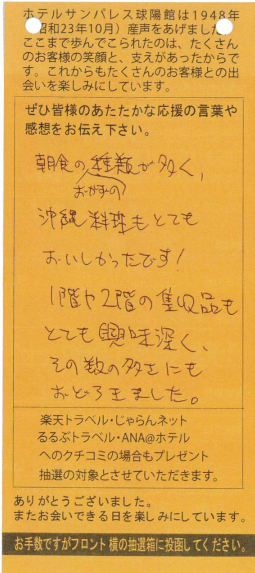 ホテルサンパレス球陽館は1948年
昭和23年10月）産声をあげました
ここまで歩んでこられたのは、たくさん
のお客様の笑顔と、支えがあったからで
す。これからもたくさんのお客様との出
会いを楽しみにしています。
ぜひ皆様のあたたかな応援の言葉や
感想をお伝え下さい。
朝食の種類が多く、
おかずの
沖縄料理もとても
おいしかったです！
1階や2階の収集品も
とても興味深く、
その数の多さにも
おどろきました。
楽天トラベル・じゃらんネット
るるぶトラベル・ANA@ホテル
へのクチコミの場合もプレゼント
抽選の対象とさせていただきます。
ありがとうございました。
またお会いできる日を楽しみにしています。
お手数ですがフロント横の抽選箱に投函してください。